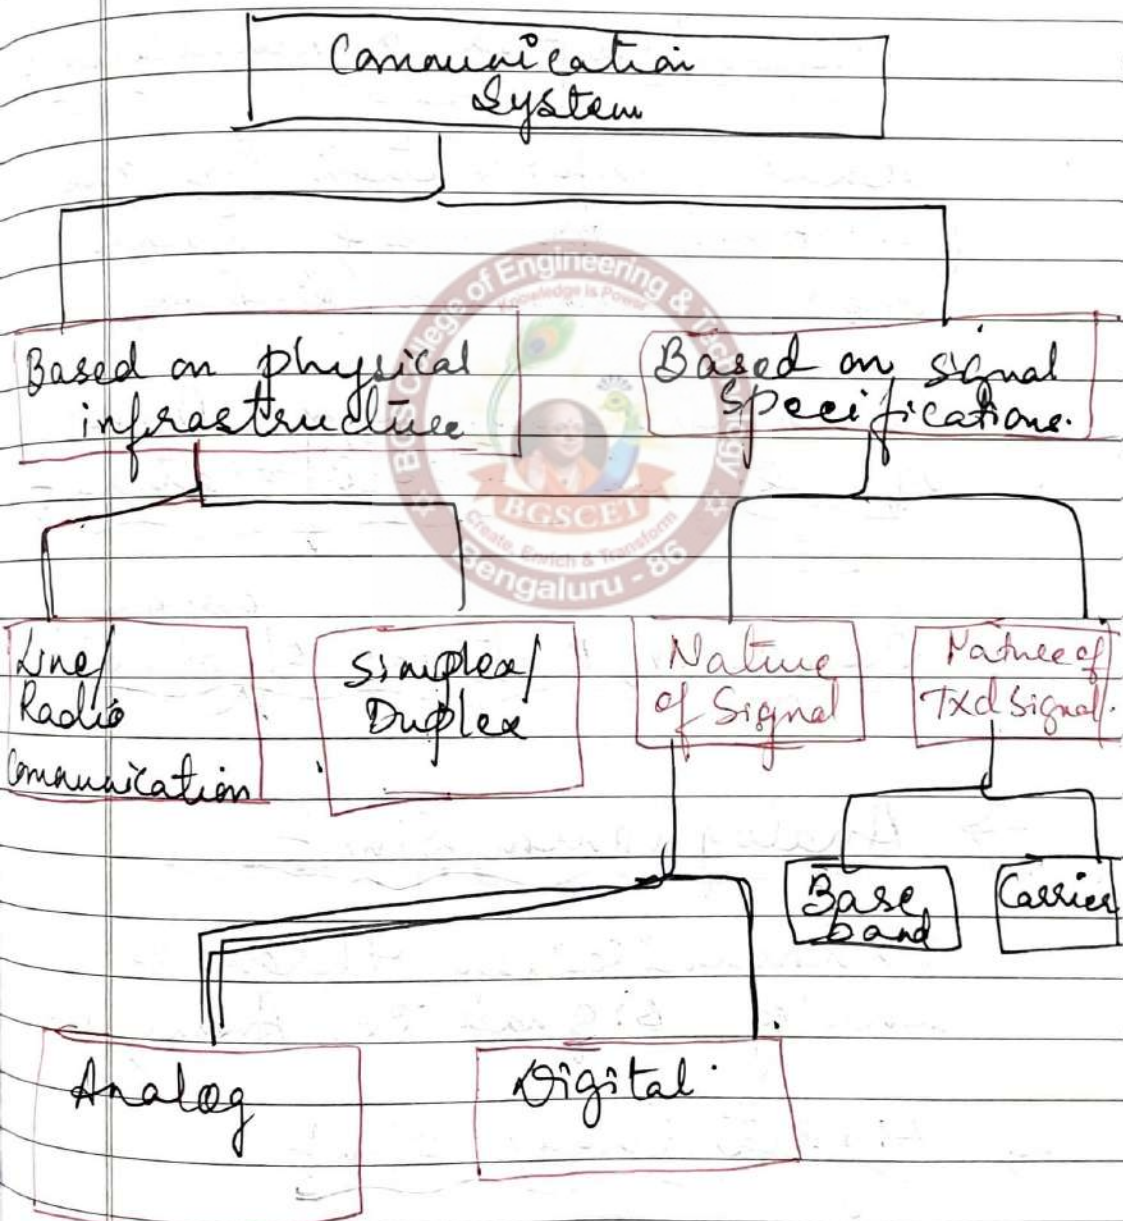 Communication
System
Based on physical
infrastructure
Based on signal
Specifications.
BGS College of Engineering & Technology
Knowledge is Power
BGSCET
Create, Enrich & Transform
Bengaluru - 86
Line/
Radio
Communication
Simplex/
Duplex
Nature
of Signal
Nature of
Txd Signal.
Base
band
Carrier
Analog
Digital